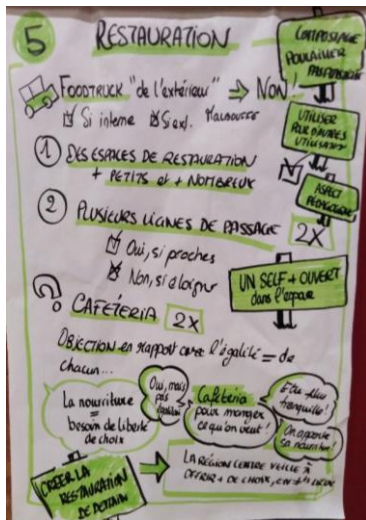 5
RESTAURATION
COMPOSTAGE
POULAILLER
FOODTRUCK "de l'extérieur" ⇒ NON!
☑ Si interne ☒ Si ext.
UTILISER
POUR D'AUTRES
UTILISATIONS
ASPECT
PÉDAGOGIQUE
1 DES ESPACES DE RESTAURATION
+ PETITS et + NOMBREUX
2 PLUSIEURS LIGNES DE PASSAGE 2X
☑ Oui, si proches
☒ Non, si éloignés
UN SELF + OUVERT
dans l'espace
? CAFÉTERIA 2X
OBJECTION en rapport avec l'égalité = de
chacun...
La nourriture
=
besoin de liberté
de choix
Oui, mais
pas
Cafétéria
pour manger
ce qu'on veut!
Être plus
tranquille!
On apporte
sa nourriture!
CRÉER LA
RESTAURATION
DE DEMAIN
LA RÉGION CENTRE VEILLE À
OFFRIR + DE CHOIX,